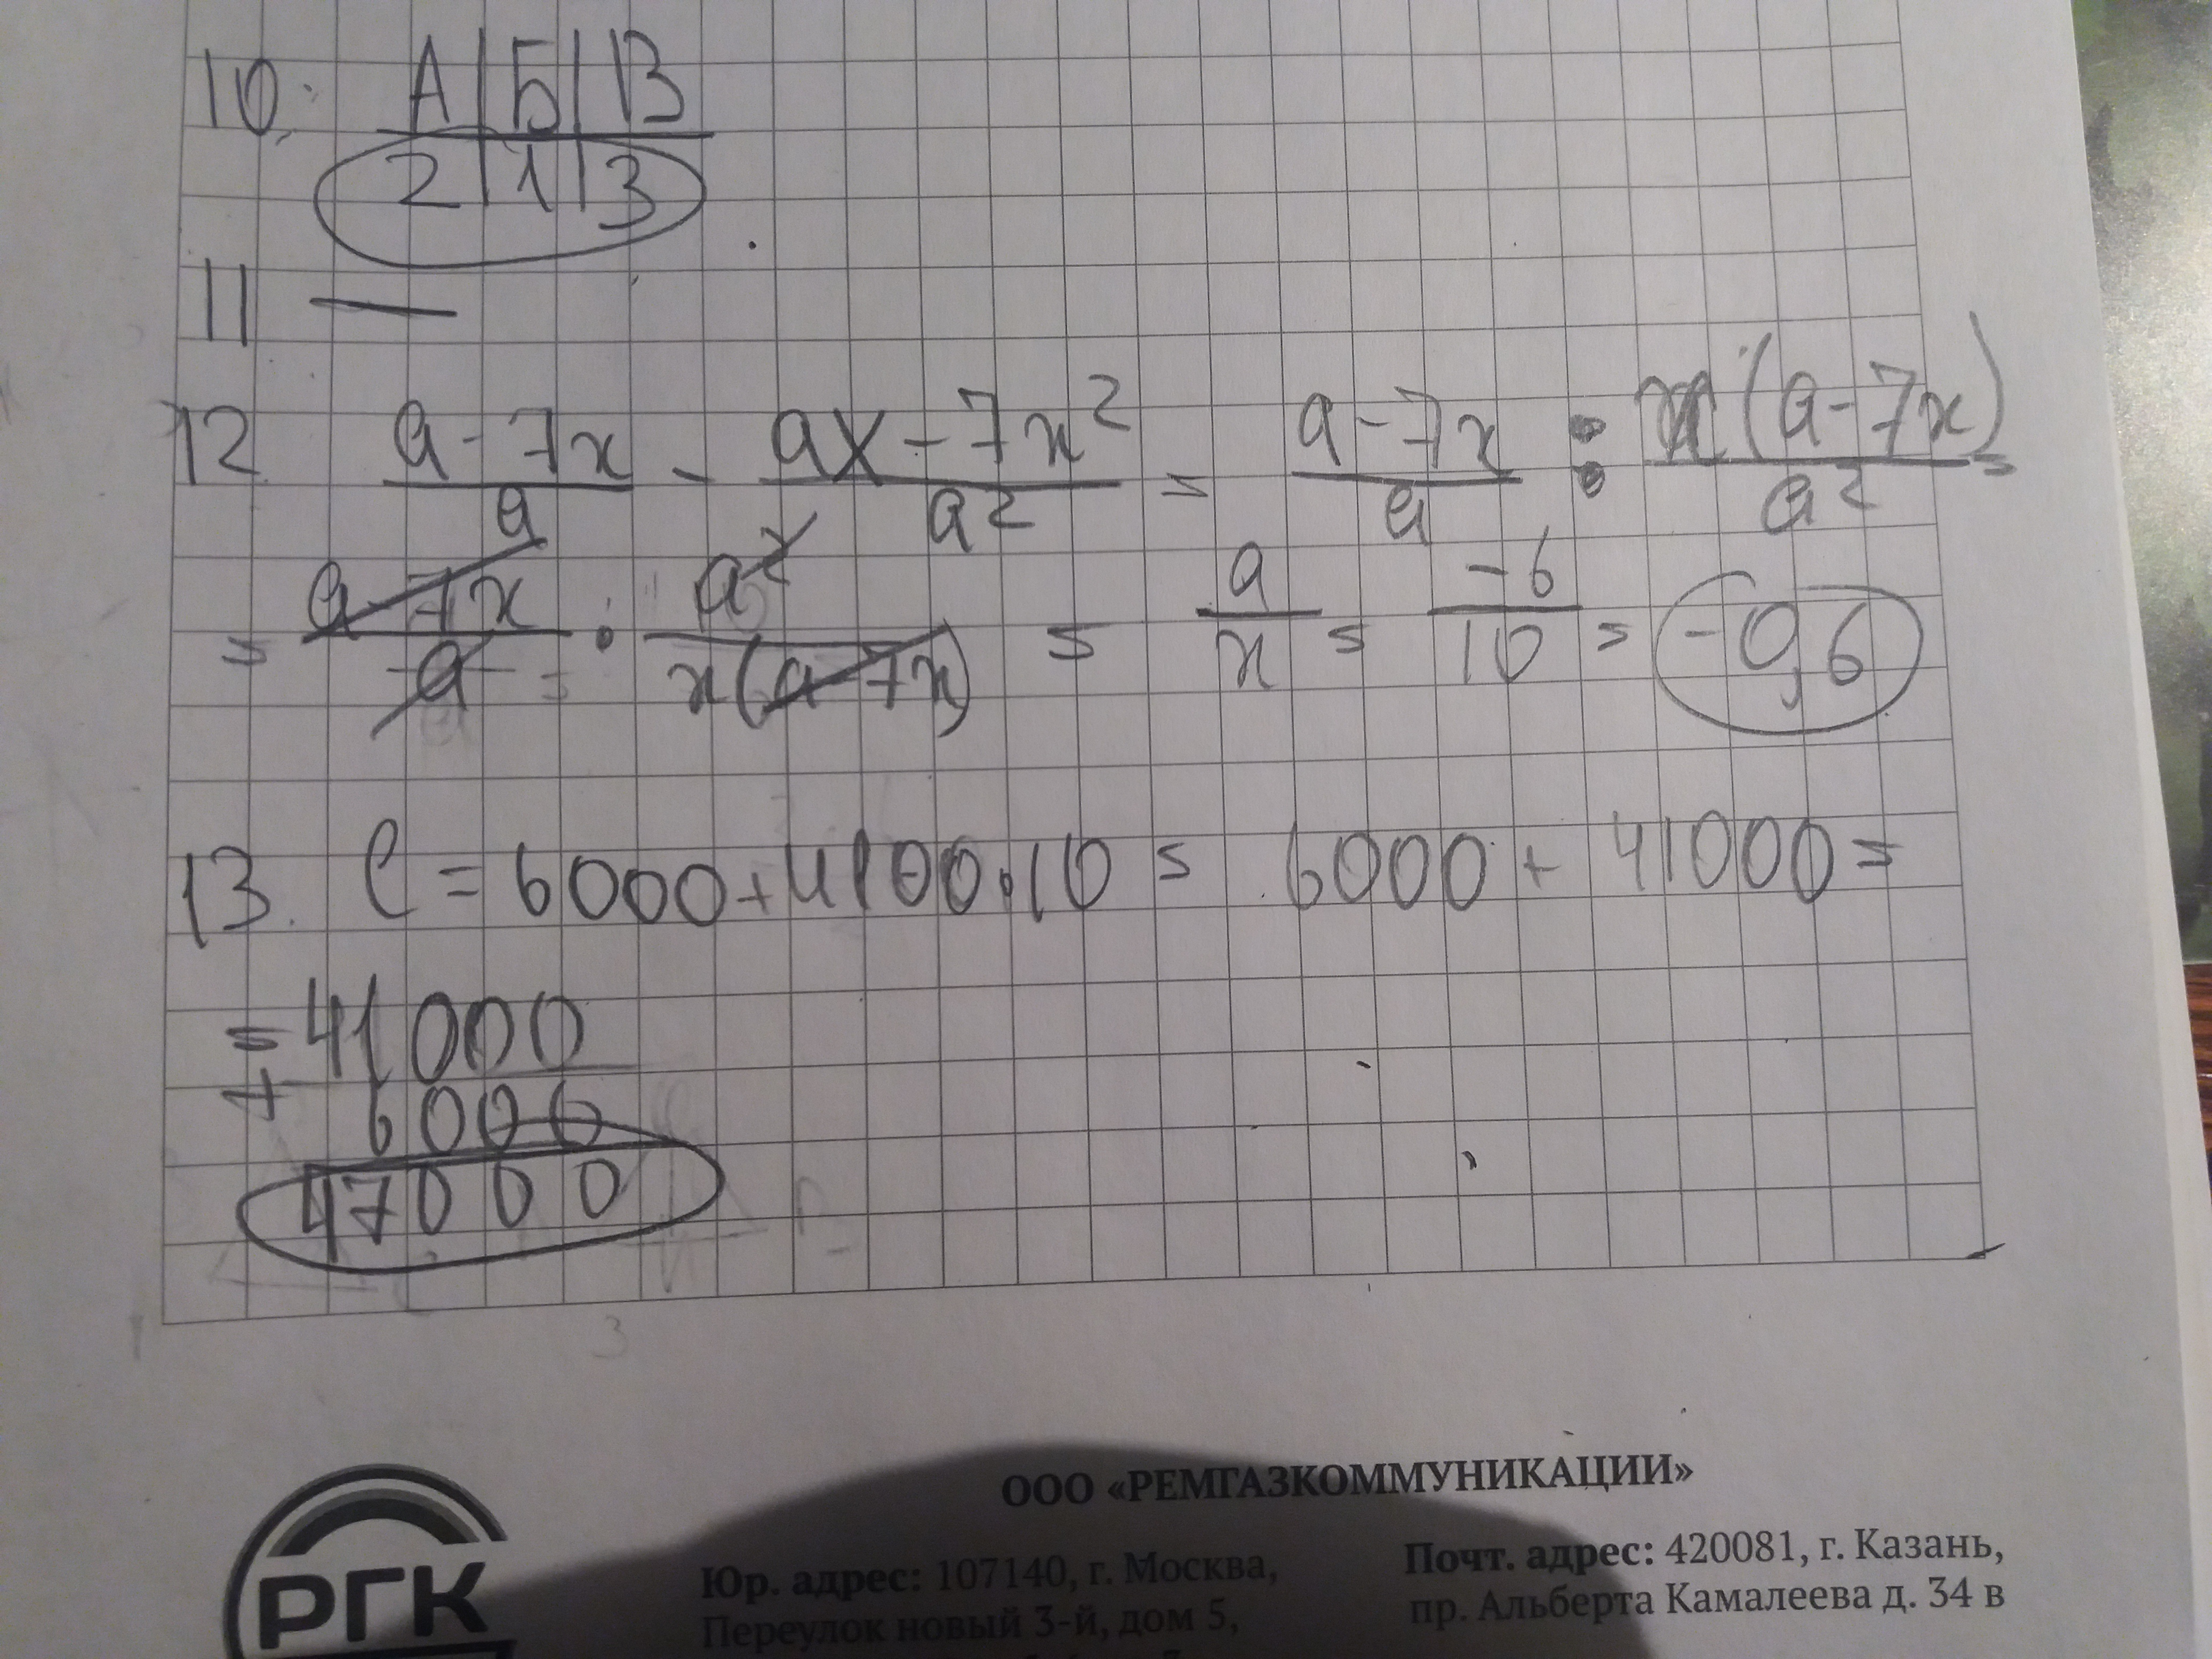 10. А | Б | В
2 | 1 | 3
11 —
12 (a - 7x)/a - (ax - 7x²)/a² = (a - 7x)/a : x(a - 7x)/a² =
= (a - 7x)/a · a²/(x(a - 7x)) = a/x = -6/10 = -0,6
13. C = 6000 + 4100 · 10 = 6000 + 41000 =
= 41000
+ 6000
47000
ООО «РЕМГАЗКОММУНИКАЦИИ»
РГК
Юр. адрес: 107140, г. Москва,
Переулок новый 3-й, дом 5,
Почт. адрес: 420081, г. Казань,
пр. Альберта Камалеева д. 34 в